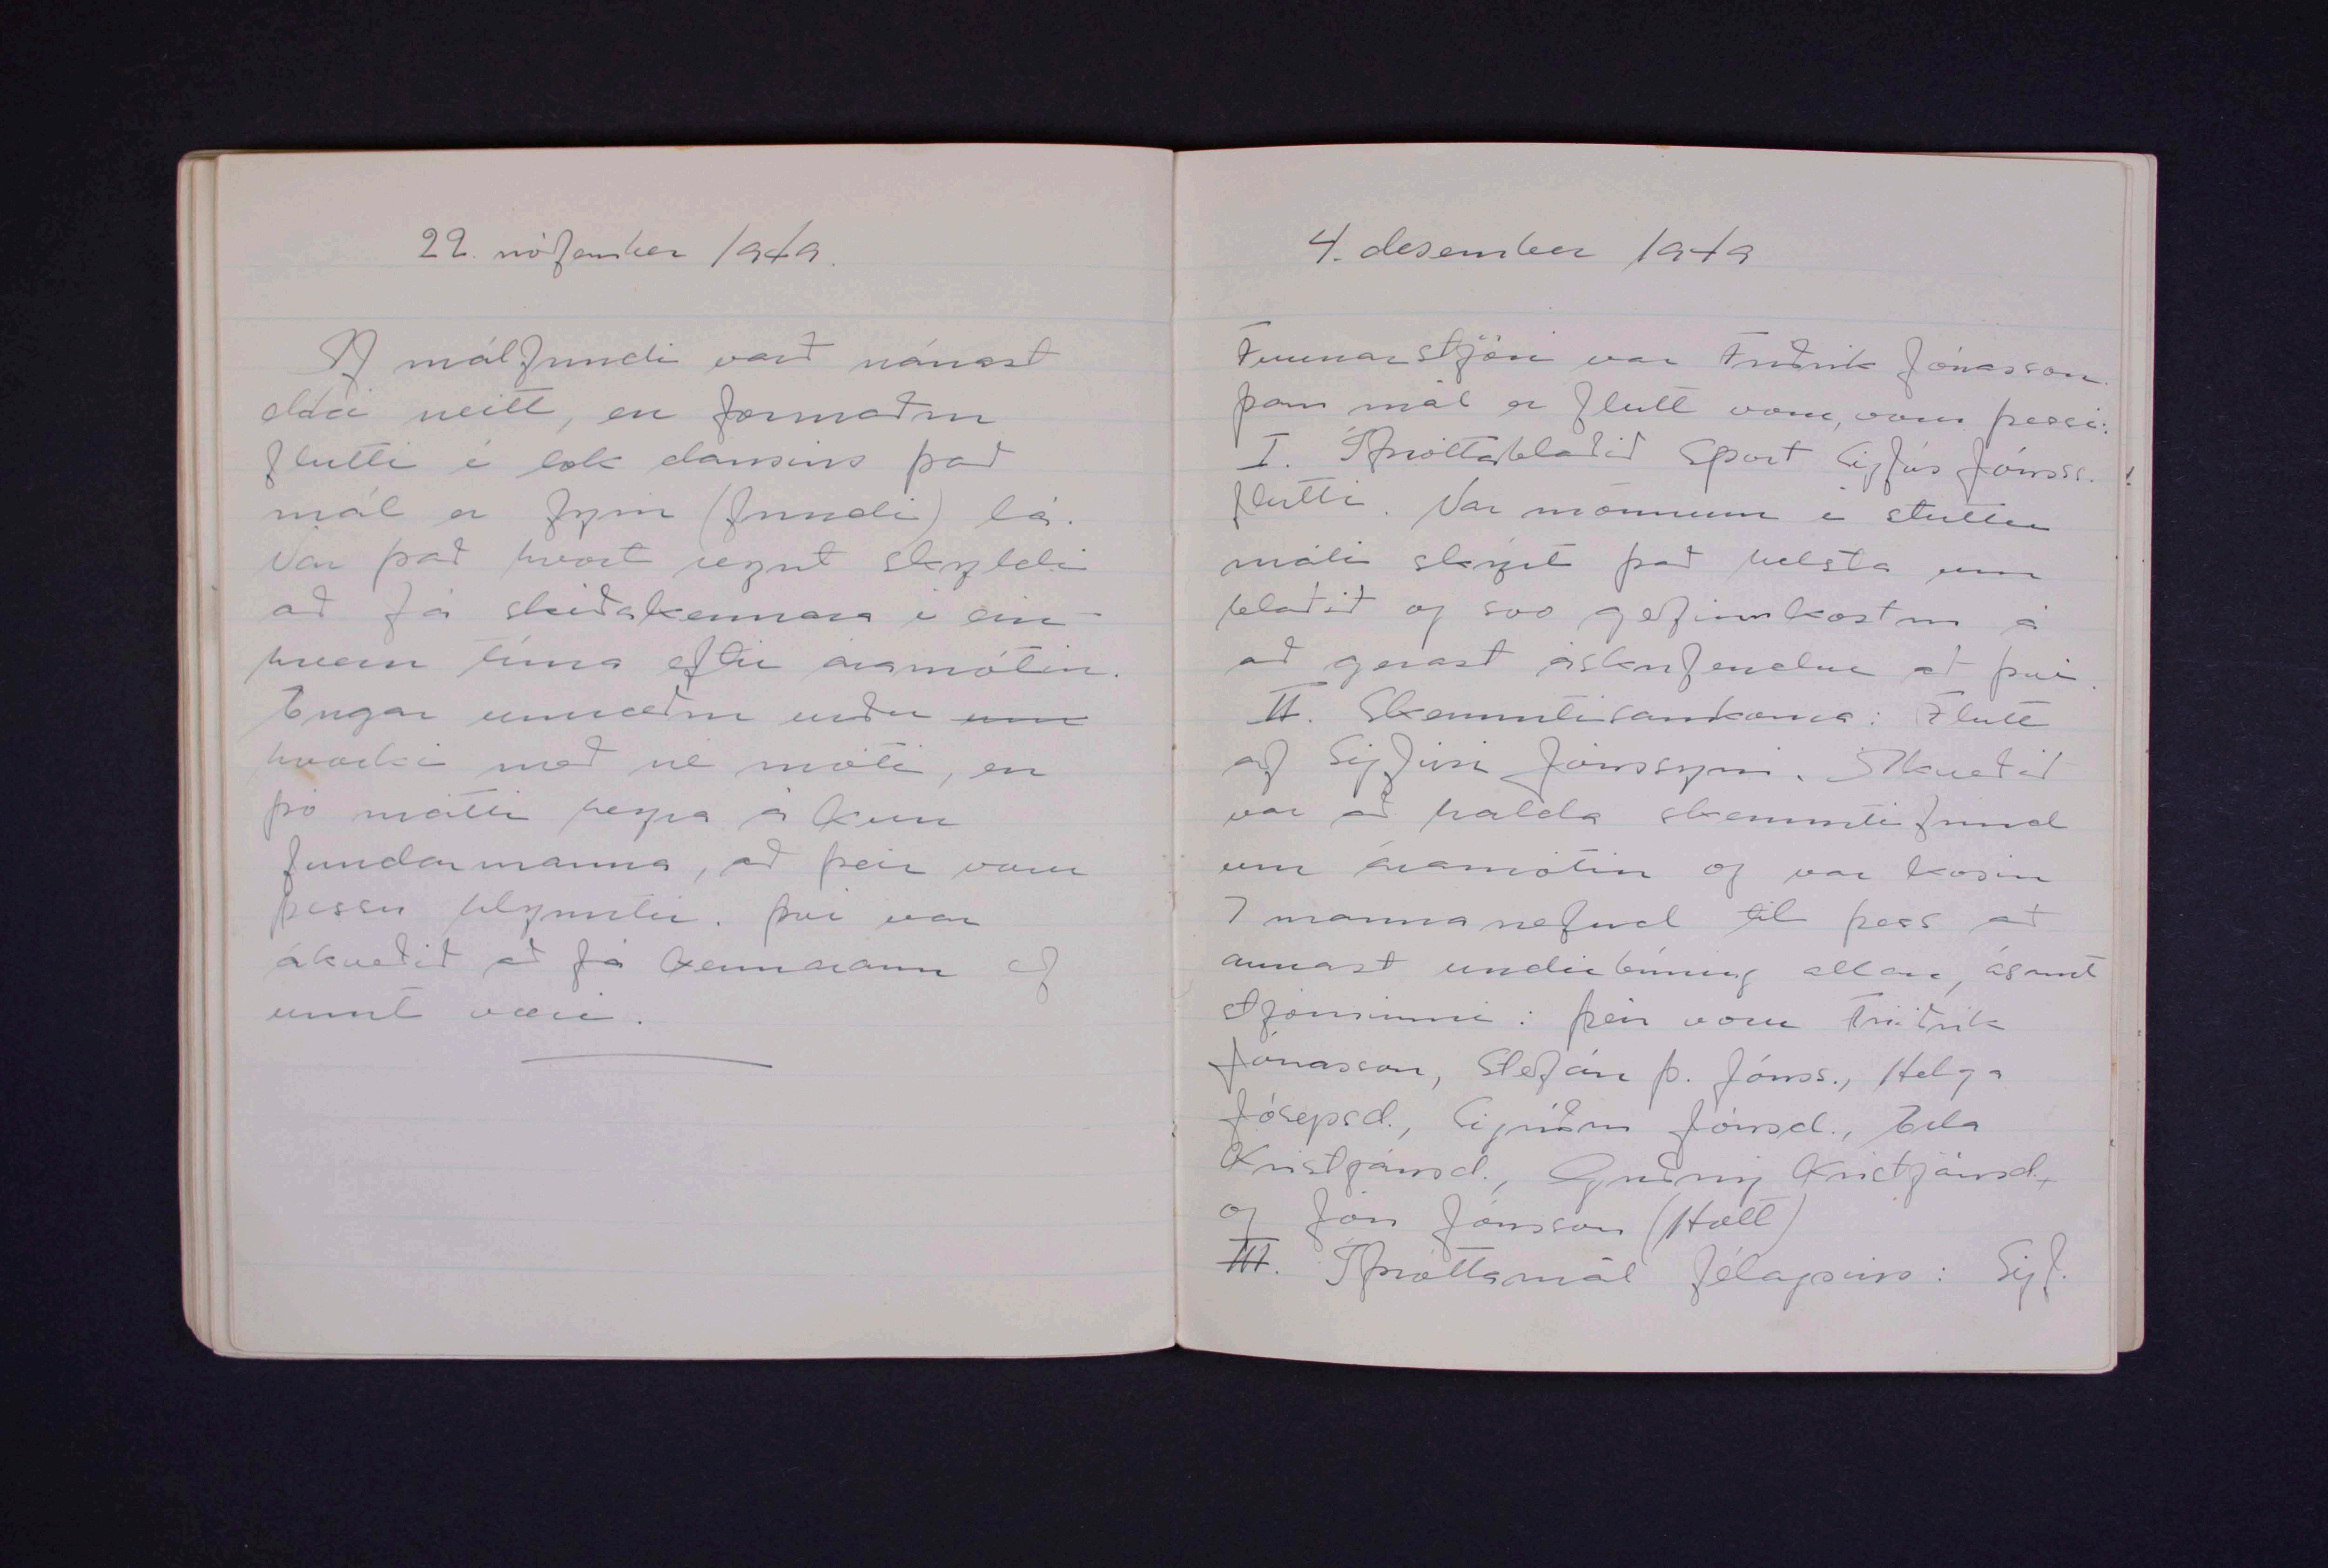 22. nófember 1949.
Af málfundi varð nánast
ekki neitt, en formaður
flutti í lok dansins það
mál er fyrir (fundi) lá.
Var það hvort reynt skyldi
að fá skíðakennara í ein-
hvern tíma eftir áramótin.
Engar umræður urðu um
hvorki með né móti, en
þó mátti heyra á kurr
fundarmanna, að þeir voru
þessu hlynntir. Því var
ákveðið að fá kennarann ef
unnt væri.
4. desember 1949
Fundarstjóri var Friðrik Jónasson.
Þau mál er flutt voru, voru þessi:
I. Íþróttablaðið Sport Sigfús Jónss.
flutti. Var mönnum í stuttu
máli skýrt það helsta um
blaðið og svo gefinn kostur á
að gerast áskrifendur að því.
II. Skemmtisamkoma: Flutt
af Sigfúsi Jónssyni. Ákveðið
var að halda skemmtifund
um áramótin og var kosin
7 manna nefnd til þess að
annast undirbúning allan, ásamt
stjórninni: Þeir voru Friðrik
Jónasson, Stefán Þ. Jónss., Helga
Jósepsd., Sigríður Jónsd., Erla
Kristjánsd., Guðný Kristjánsd.,
og Jón Jónsson (Holt)
III. Íþróttamál félagsins: Sigf.